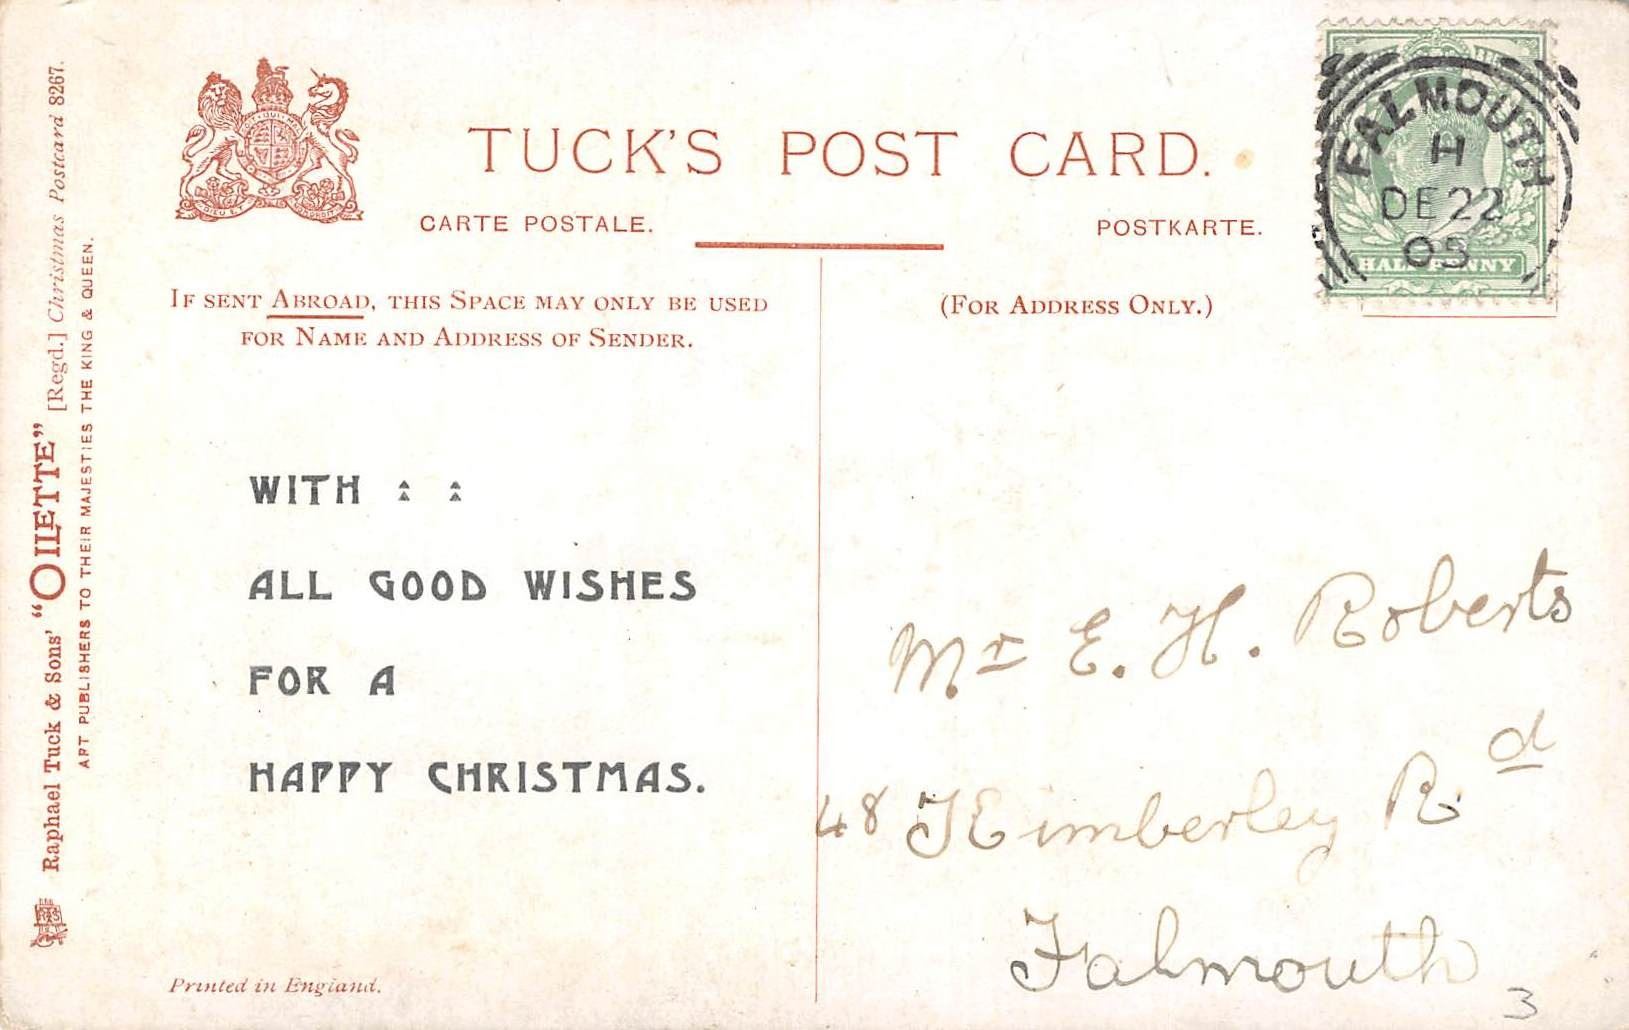 TUCK'S POST CARD.
CARTE POSTALE.
POSTKARTE.
FALMOUTH
H
DE 22
05
HALFPENNY
IF SENT ABROAD, THIS SPACE MAY ONLY BE USED
FOR NAME AND ADDRESS OF SENDER.
(FOR ADDRESS ONLY.)
WITH : :
ALL GOOD WISHES
FOR A
HAPPY CHRISTMAS.
Mr E. H. Roberts
48 Kimberley Rd
Falmouth
3
Raphael Tuck & Sons' "OILETTE" [Regd.] Christmas Postcard 8267.
ART PUBLISHERS TO THEIR MAJESTIES THE KING & QUEEN.
Printed in England.